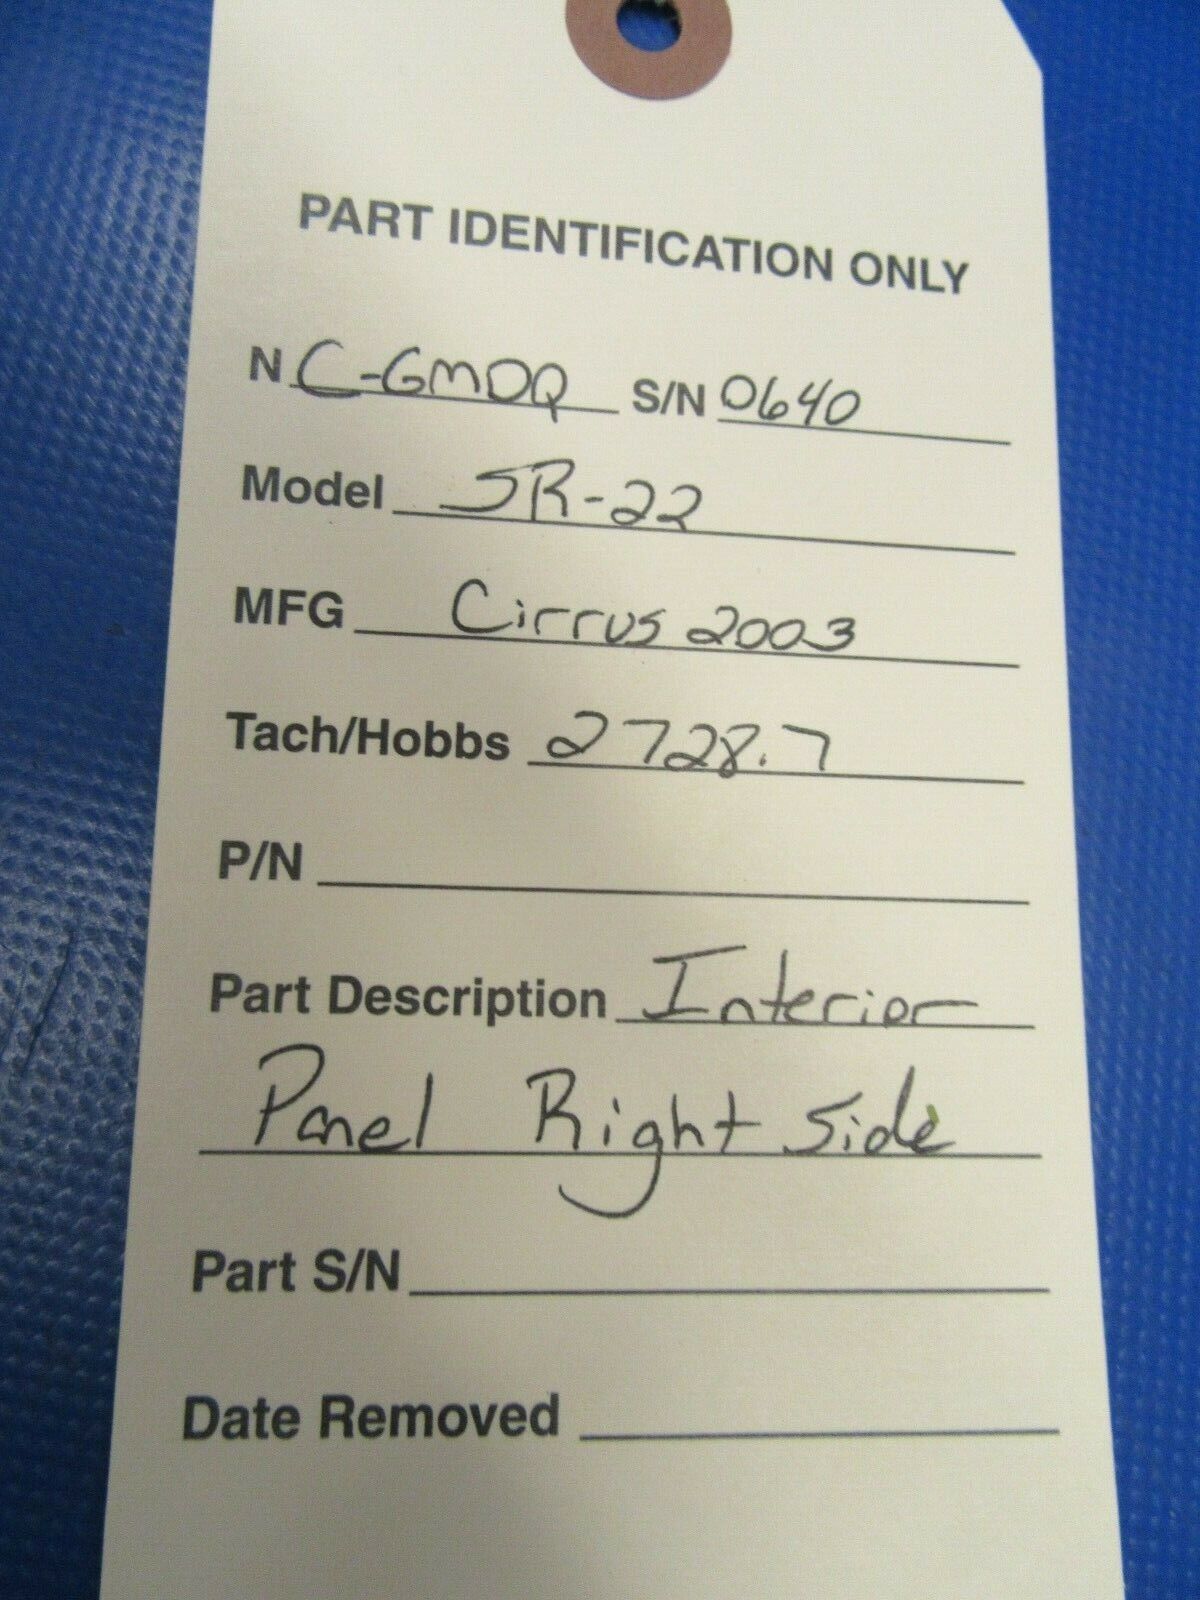 PART IDENTIFICATION ONLY
N C-GMDQ S/N 0640
Model SR-22
MFG Cirrus 2003
Tach/Hobbs 2728.7
P/N
Part Description Interior
Panel Right Side
Part S/N
Date Removed